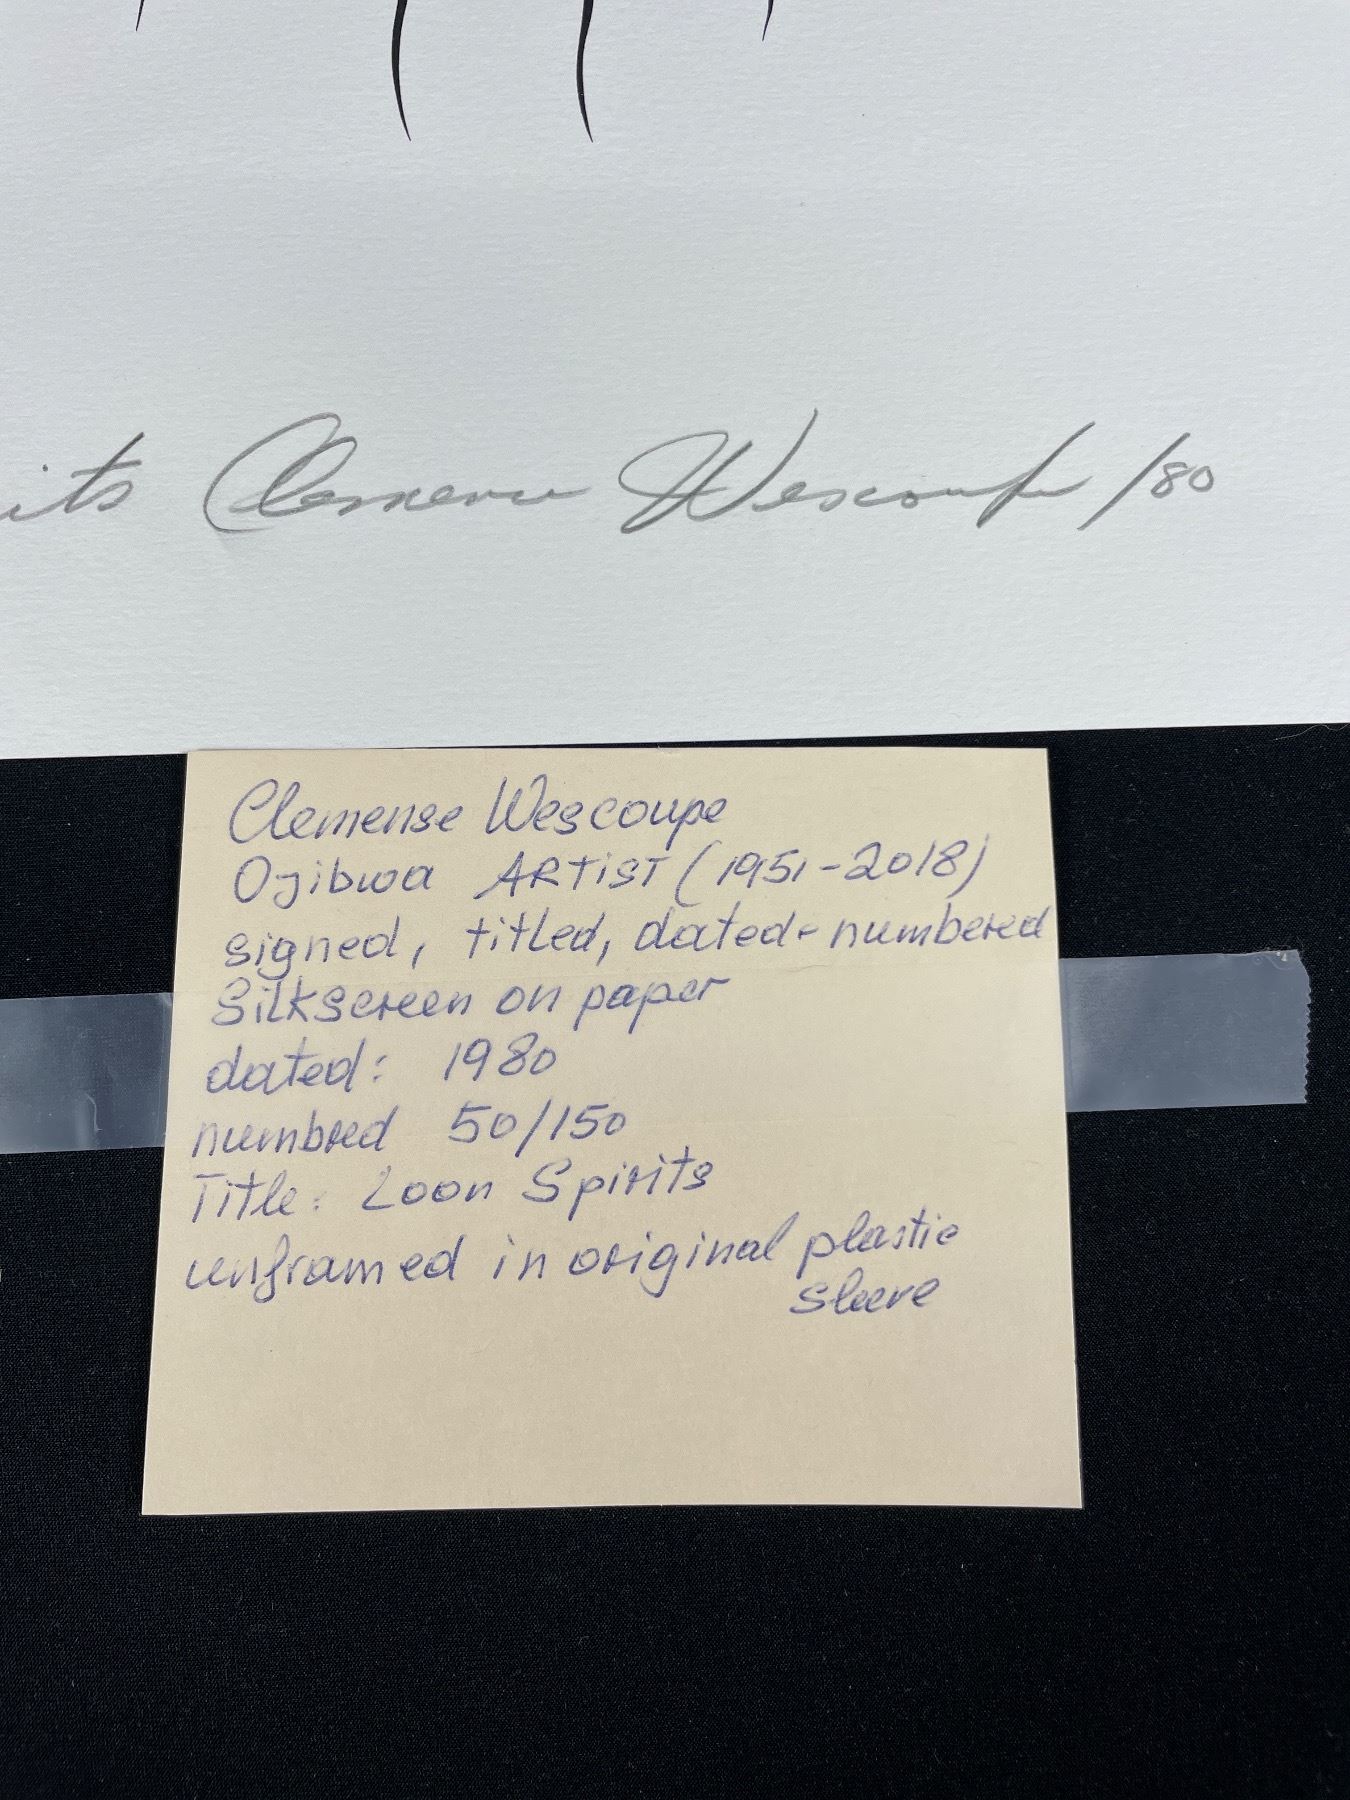 its Clemence Wescoupe /80
Clemense Wescoupe
Ojibwa ARTiST (1951-2018)
signed, titled, dated + numbered
Silkscreen on paper
dated: 1980
numbred 50/150
Title: Loon Spirits
unframed in original plastic
sleeve